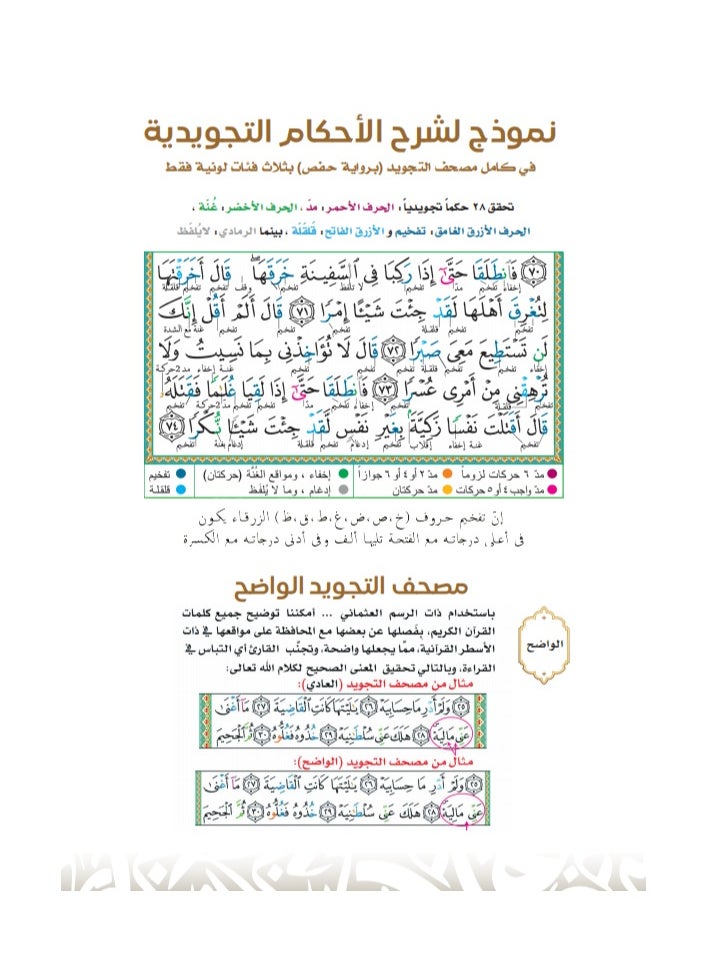 نموذج لشرح الأحكام التجويدية
في كامل مصحف التجويد (برواية حفص) بثلاث فئات لونية فقط
تحقق ٢٨ حكماً تجويدياً: الحرف الأحمر: مدّ، الحرف الأخضر: غُنّة،
الحرف الأزرق الغامق: تفخيم و الأزرق الفاتح: قَلقَلَة، بينما الرمادي: لا يُلفَظ
٧٠ فَٱنطَلَقَا حَتَّىٰٓ إِذَا رَكِبَا فِى ٱلسَّفِينَةِ خَرَقَهَا ۖ قَالَ أَخَرَقْتَهَا
لِتُغْرِقَ أَهْلَهَا لَقَدْ جِئْتَ شَيْـًٔا إِمْرًا ٧١ قَالَ أَلَمْ أَقُلْ إِنَّكَ
لَن تَسْتَطِيعَ مَعِىَ صَبْرًا ٧٢ قَالَ لَا تُؤَاخِذْنِى بِمَا نَسِيتُ وَلَا
تُرْهِقْنِى مِنْ أَمْرِى عُسْرًا ٧٣ فَٱنطَلَقَا حَتَّىٰٓ إِذَا لَقِيَا غُلَـٰمًا فَقَتَلَهُۥ
قَالَ أَقَتَلْتَ نَفْسًا زَكِيَّةًۢ بِغَيْرِ نَفْسٍ لَّقَدْ جِئْتَ شَيْـًٔا نُّكْرًا ٧٤
مدّ ٦ حركات لزوماً مدّ ٢ أو ٤ أو ٦ جوازاً إخفاء، ومواقع الغُنَّة (حركتان) تفخيم
مدّ واجب ٤ أو ٥ حركات مدّ حركتان إدغام، وما لا يُلفَظ قلقلة
إنّ تفخيم حروف (خ،ص،ض،غ،ط،ق،ظ) الزرقاء يكون
في أعلى درجاته مع الفتحة تليها ألف وفي أدنى درجاته مع الكسرة
مصحف التجويد الواضح
الواضح
باستخدام ذات الرسم العثماني ... أمكننا توضيح جميع كلمات
القرآن الكريم، بِفَصلها عن بعضها مع المحافظة على مواقعها في ذات
الأسطر القرآنية، ممّا يجعلها واضحة، وتجنّب القارئ أي التباس في
القراءة، وبالتالي تحقيق المعنى الصحيح لكلام الله تعالى:
مثال من مصحف التجويد (العادي):
٢٥ وَلَمْ أَدْرِ مَا حِسَابِيَهْ ٢٦ يَـٰلَيْتَهَا كَانَتِ ٱلْقَاضِيَةَ ٢٧ مَآ أَغْنَىٰ
عَنِّى مَالِيَهْ ٢٨ هَلَكَ عَنِّى سُلْطَـٰنِيَهْ ٢٩ خُذُوهُ فَغُلُّوهُ ٣٠ ثُمَّ ٱلْجَحِيمَ
مثال من مصحف التجويد (الواضح):
٢٥ وَلَمْ أَدْرِ مَا حِسَابِيَهْ ٢٦ يَـٰلَيْتَهَا كَانَتِ ٱلْقَاضِيَةَ ٢٧ مَآ أَغْنَىٰ
عَنِّى مَالِيَهْ ٢٨ هَلَكَ عَنِّى سُلْطَـٰنِيَهْ ٢٩ خُذُوهُ فَغُلُّوهُ ٣٠ ثُمَّ ٱلْجَحِيمَ